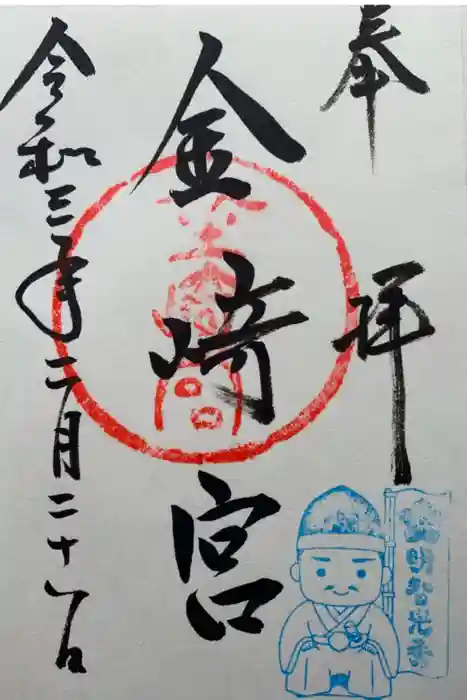 奉拝
金崎宮
令和三年二月二十八日
明智光秀